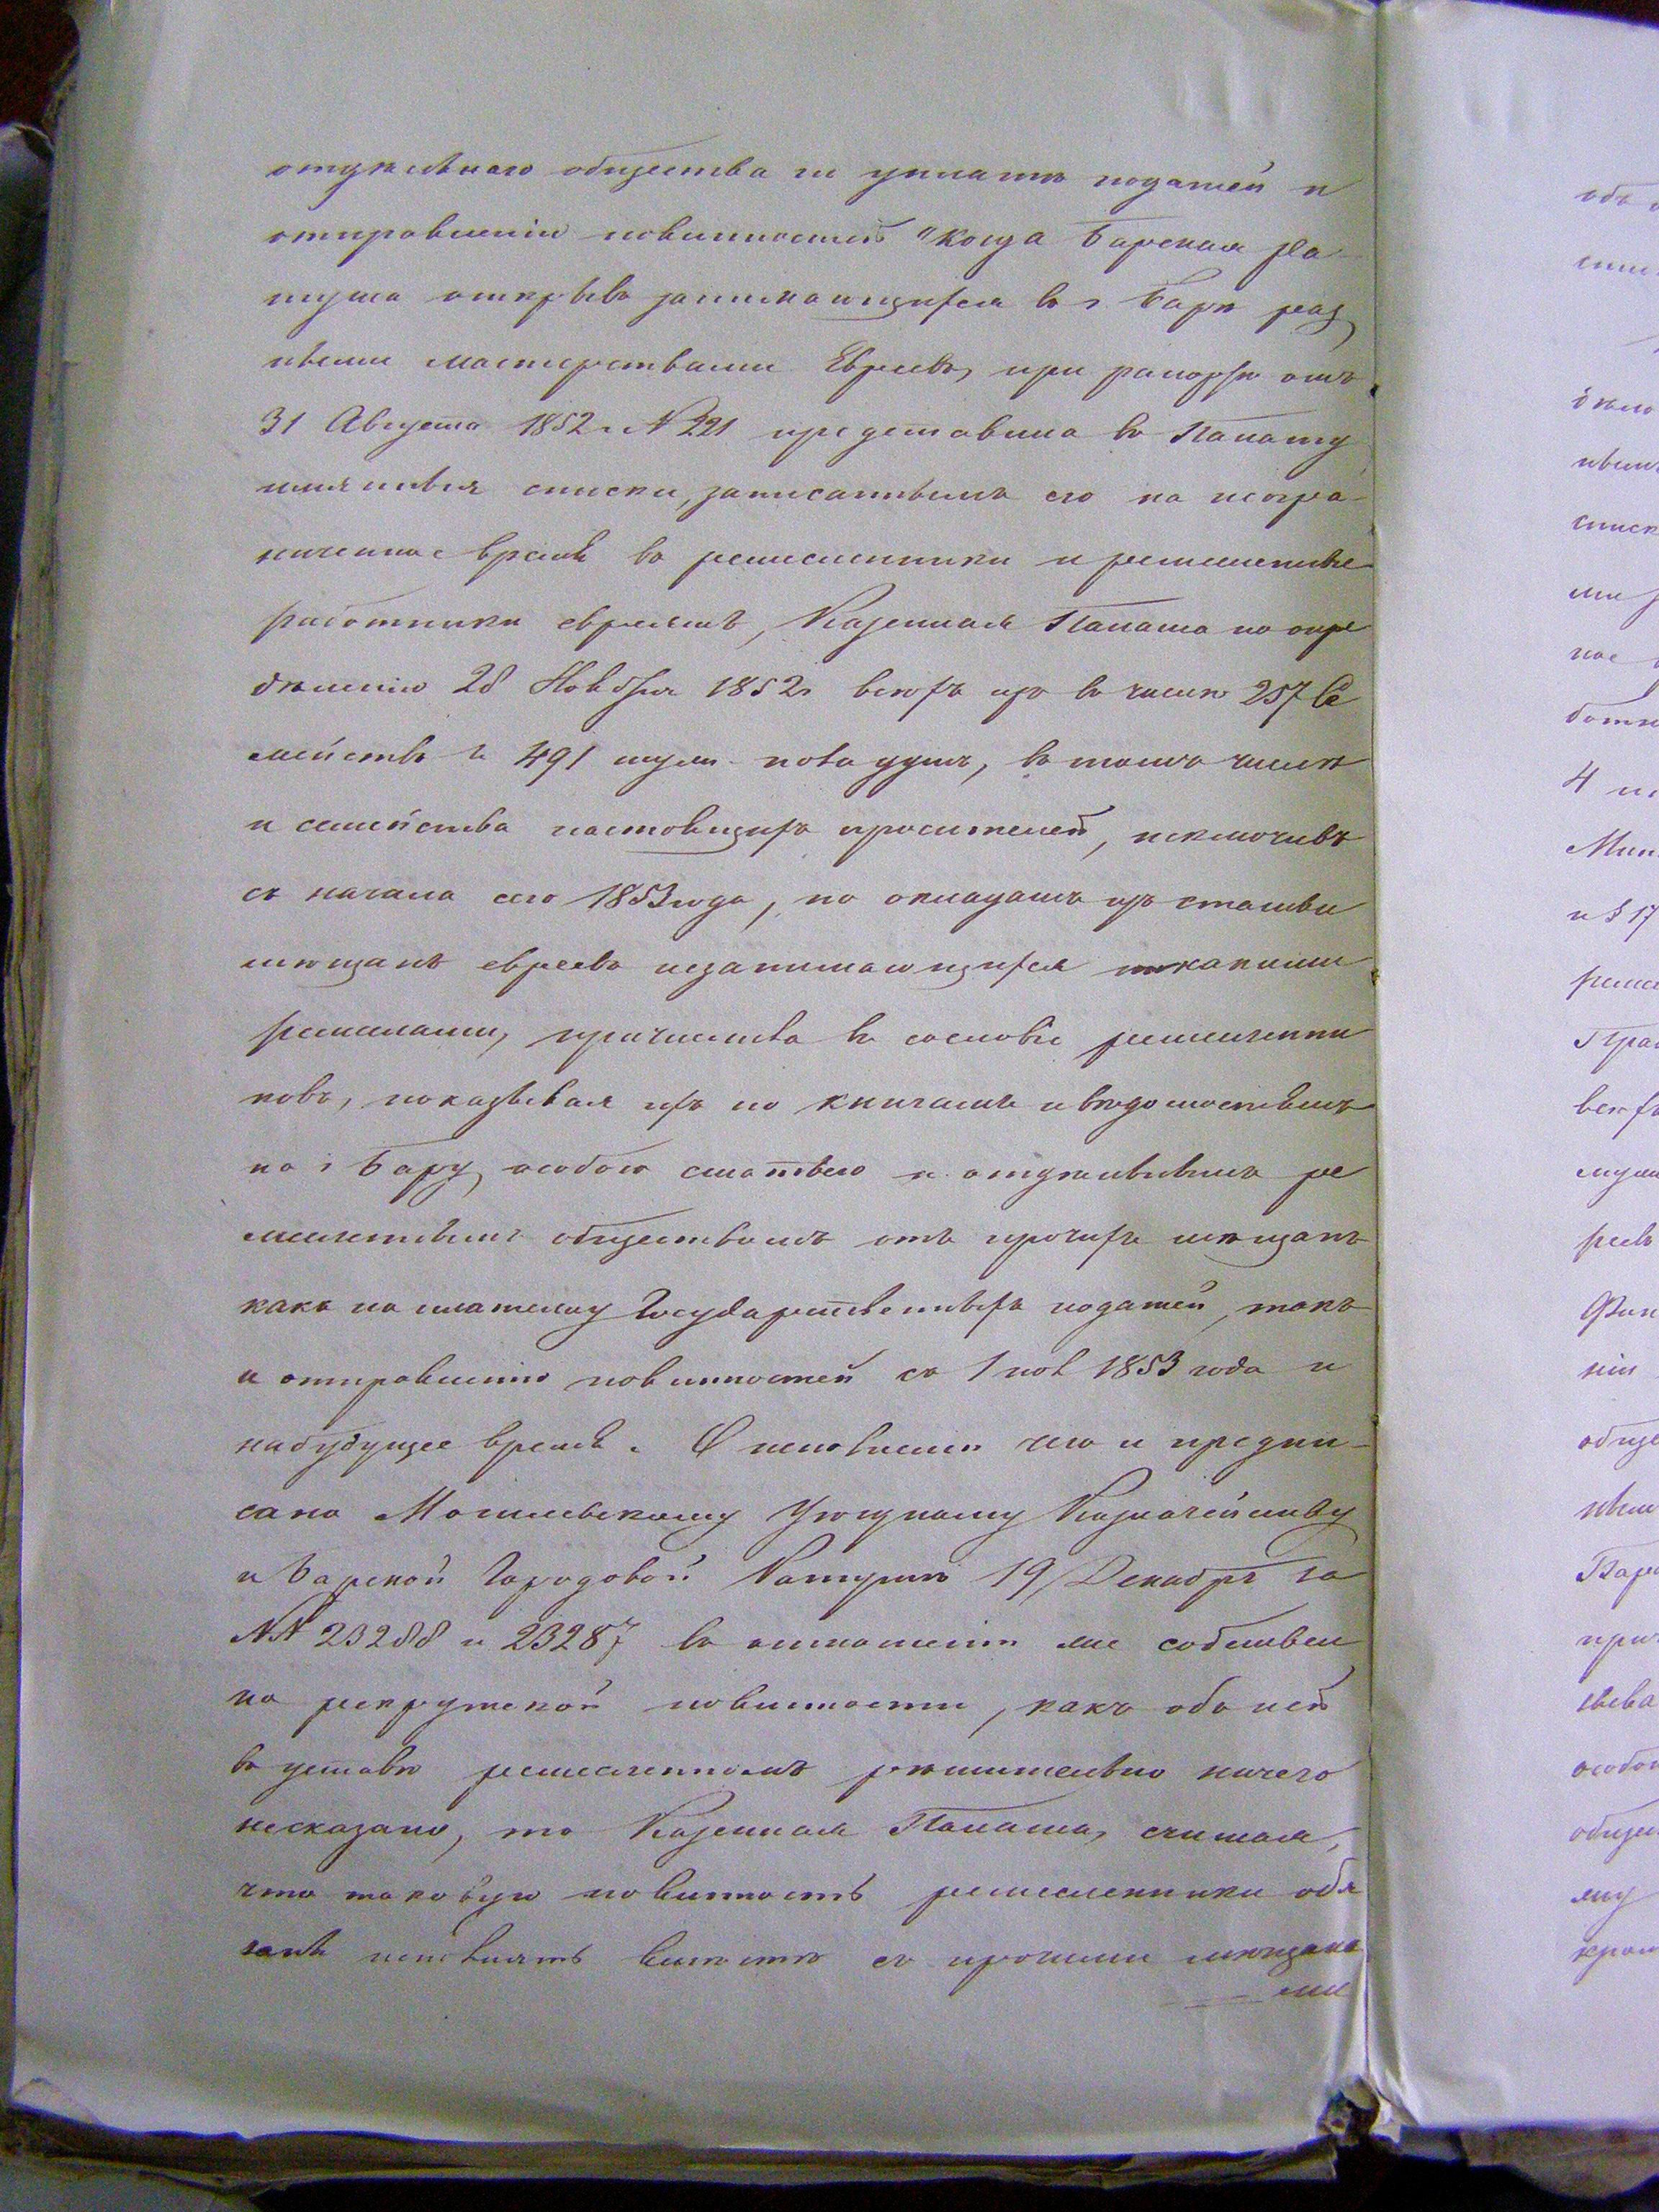 отдѣльнаго общества къ уплатѣ податей и
отправленію повинностей "когда Барская Ра-
туша открывъ занимающихся въ г. Барѣ раз
ными мастерствами Евреевъ, при рапортѣ отъ
31 Августа 1852 г. № 221 представила въ Палату
имянныя списки, записаннымъ ею на неогра-
ниченное время въ ремесленники и ремесленные
работники евреямъ, Казенная Палата по опре
дѣленію 28 Ноября 1852 г. всѣхъ ихъ въ числѣ 257 Се
мействъ и 491 муж. пола душъ, въ томъ числѣ
и семейства настоящихъ просителей, исключивъ
съ начала сего 1853 года, по окладамъ изъ статьи
мѣщанъ евреевъ незанимающихся никакими
ремеслами, причислила въ сословіе ремесленни
ковъ, показывая ихъ по книгамъ и вѣдомостямъ
по г. Бару особою статьею и отдѣльнымъ ре
месленнымъ обществомъ отъ прочихъ мѣщанъ
какъ по платежу Государственныхъ податей, такъ
и отправленію повинностей съ 1 пол 1853 года и
набудущее время. О исполненіи чего и предпи-
сано Могилевскому Уѣздному Казначейству
и Барской Городовой Ратушѣ 19 Декабря за
№№ 23288 и 23287 въ отношеніи же собствен
но рекрутской повинности, какъ объ ней
въ уставѣ ремесленномъ рѣшительно ничего
несказано, то Казенная Палата, считая,
что таковую повинность ремесленники обя
заны исполнять вмѣстѣ съ прочими мѣщана
ми

объ
4
Мин
и § 17
общ
Барс
особо
общ
кром